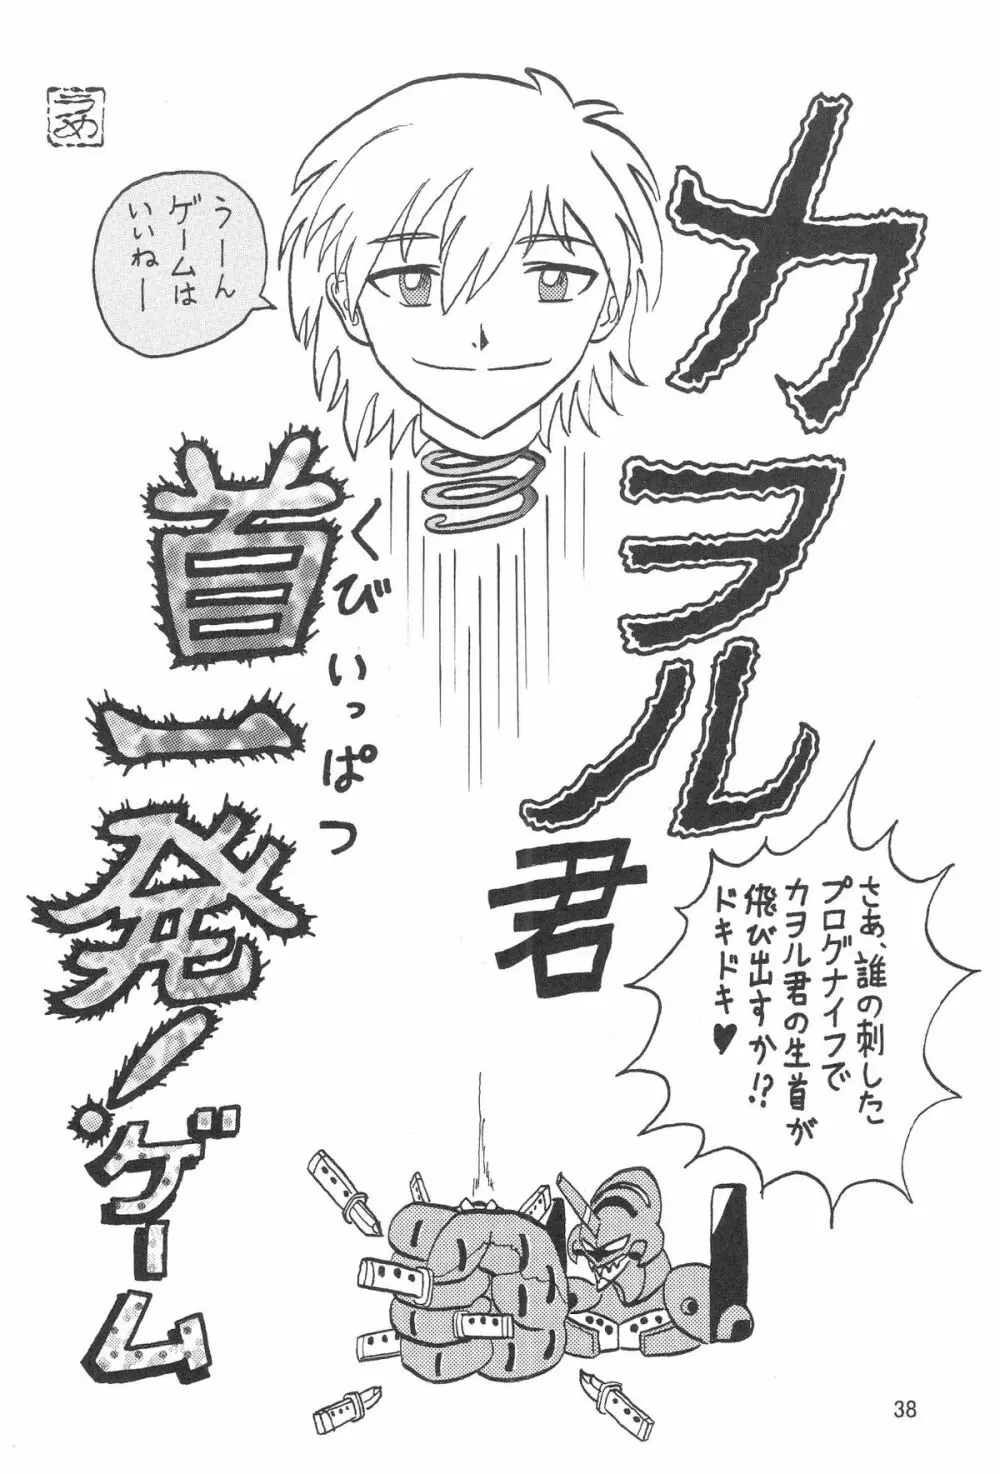 カヲル君
首一発!ゲーム
くびいっぱつ
うーん
ゲームは
いいねー
さあ、誰の刺した
プログナイフで
カヲル君の生首が
飛び出すか!?
ドキドキ♥
うめ
38